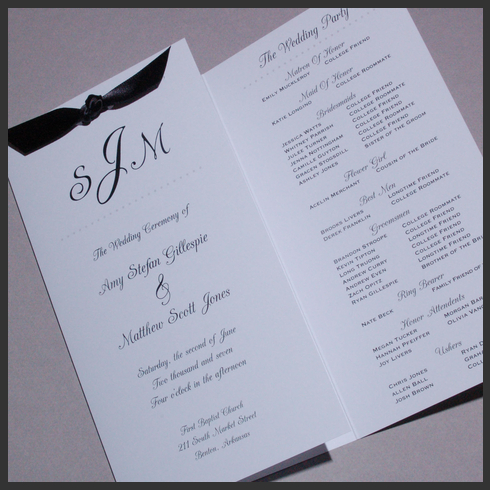 SJM
The Wedding Ceremony of
Amy Stefan Gillespie
&
Matthew Scott Jones
Saturday, the second of June
Two thousand and seven
Four o'clock in the afternoon
First Baptist Church
211 South Market Street
Benton, Arkansas
The Wedding Party
Matron Of Honor
Emily Muckleroy College Friend
Maid Of Honor
Katie Longing College Roommate
Bridesmaids
Jessica Watts College Friend
Whitney Parrish College Roommate
Julee Turner College Friend
Jenna Nottingham College Friend
Camille Guyton College Friend
Gracen Stodgill College Roommate
Ashley Jones Sister of the Groom
Flower Girl
Acelin Merchant Cousin of the Bride
Best Men
Brooks Livers Longtime Friend
Derek Franklin College Roommate
Groomsmen
Brandon Stroope College Roommate
Kevin Tipton College Friend
Long Truong Longtime Friend
Andrew Curry Longtime Friend
Andrew Even Longtime
Zach Opitz College Roommate
Ryan Gillespie Brother of the Br
Ring Bearer
Nate Beck Family Friend of
Honor Attendents
Megan Tucker Morgan Bar
Hannah Pfeiffer Olivia Van
Joy Livers
Ushers
Chris Jones Ryan D
Allen Ball Graha
Josh Brown Col